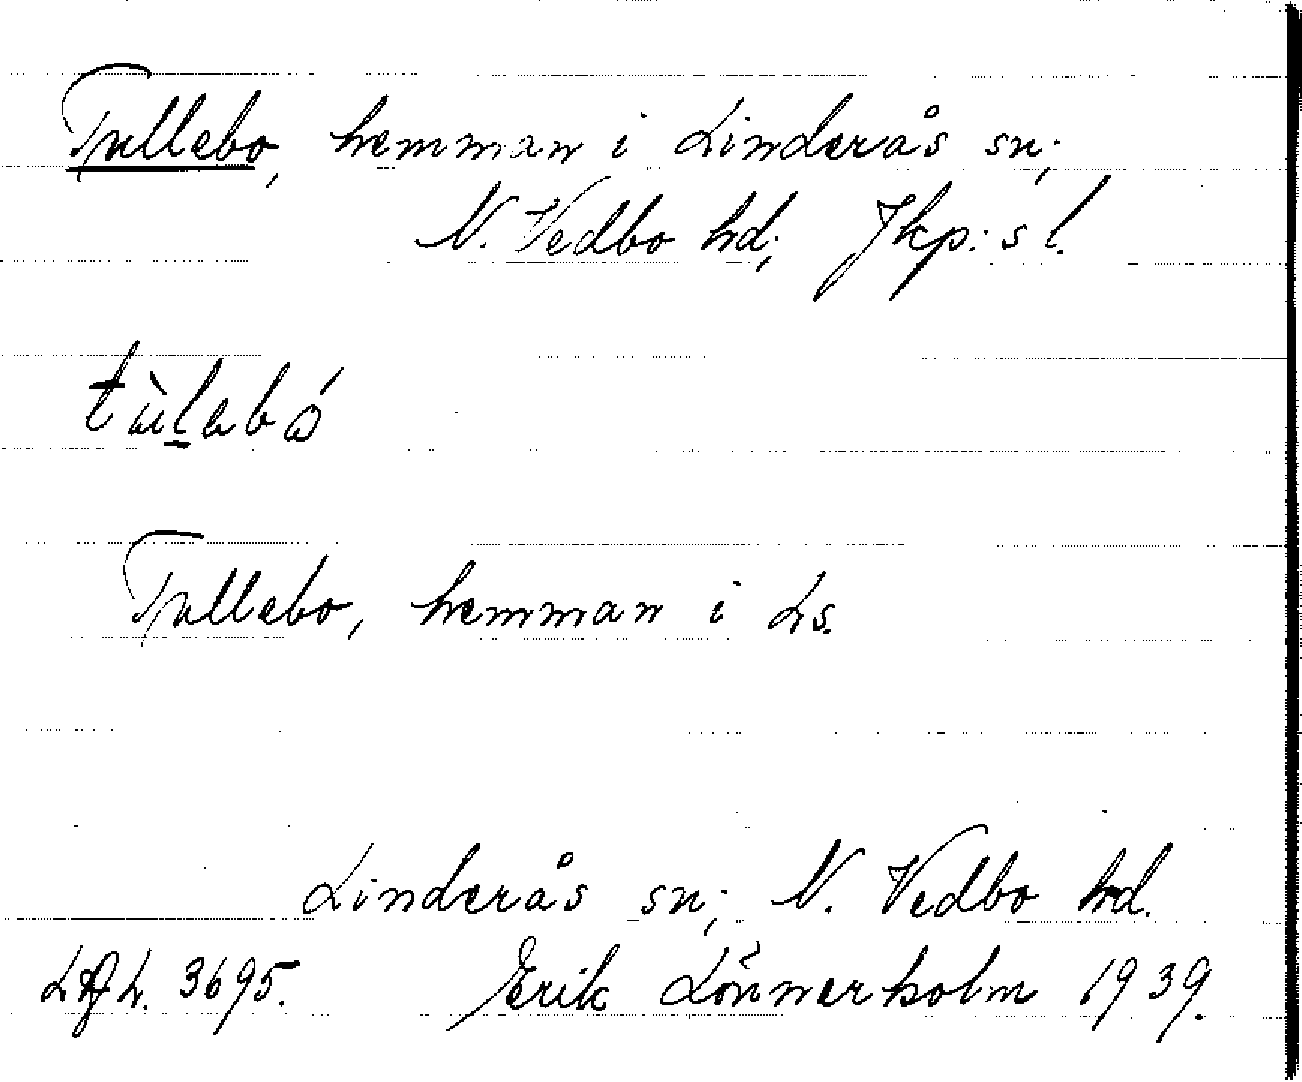 Tullebo, hemman i Linderås sn;
N. Vedbo hd; Jkp:s l.
tùlabó
Tullebo, hemman i Ls.
Linderås sn; N. Vedbo hd.
3695. Erik Lönnerholm 1939.